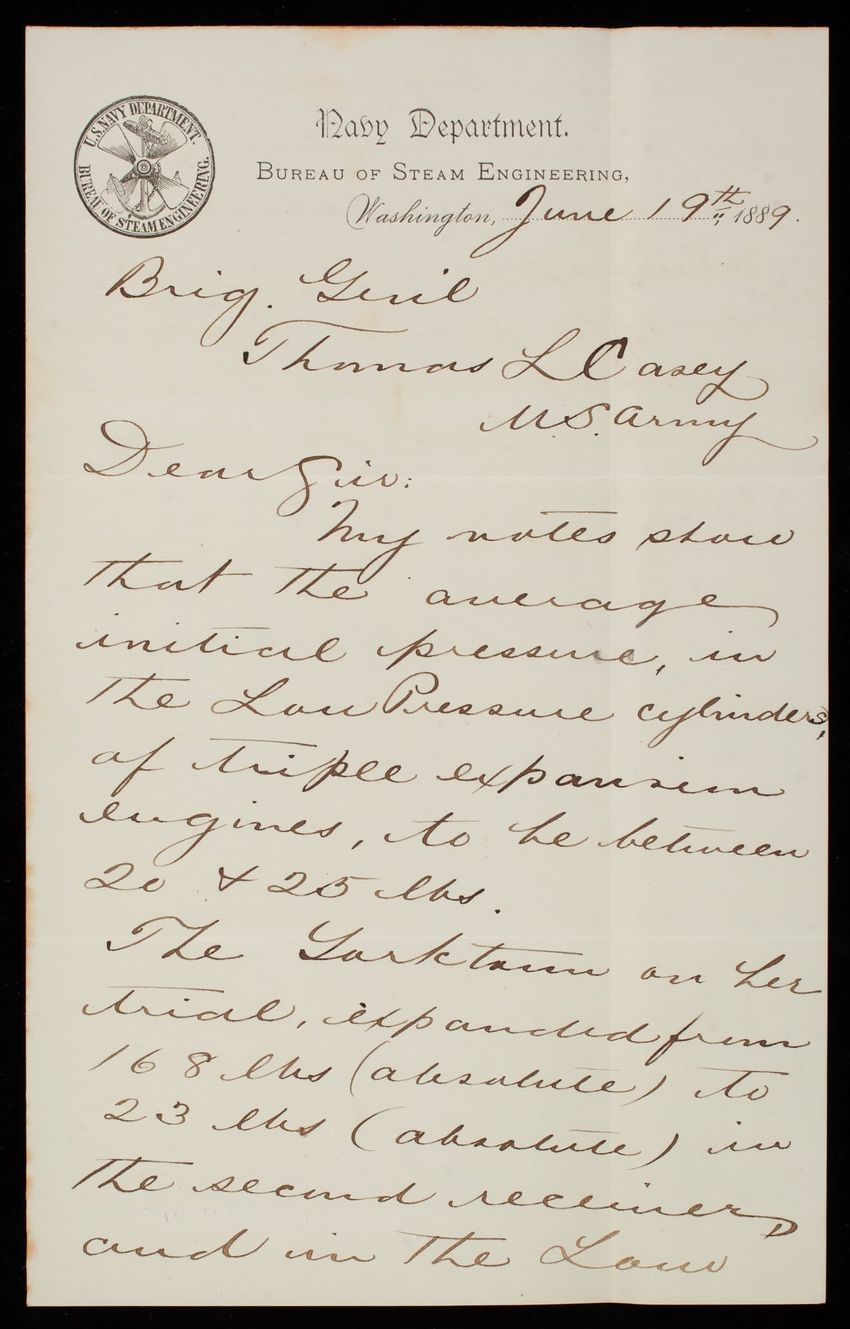 U.S. NAVY DEPARTMENT.
BUREAU OF STEAM ENGINEERING.
Navy Department.
BUREAU OF STEAM ENGINEERING,
Washington, June 19th 1889.
Brig. Genl
Thomas L Casey
U.S. Army
Dear Sir:
My notes show
that the average
initial pressure, in
the Low Pressure cylinders,
of triple expansion
engines, to be between
20 & 25 lbs.
The Yorktown on her
trial, expanded from
168 lbs (absolute) to
23 lbs (absolute) in
the second receiver,
and in the Low